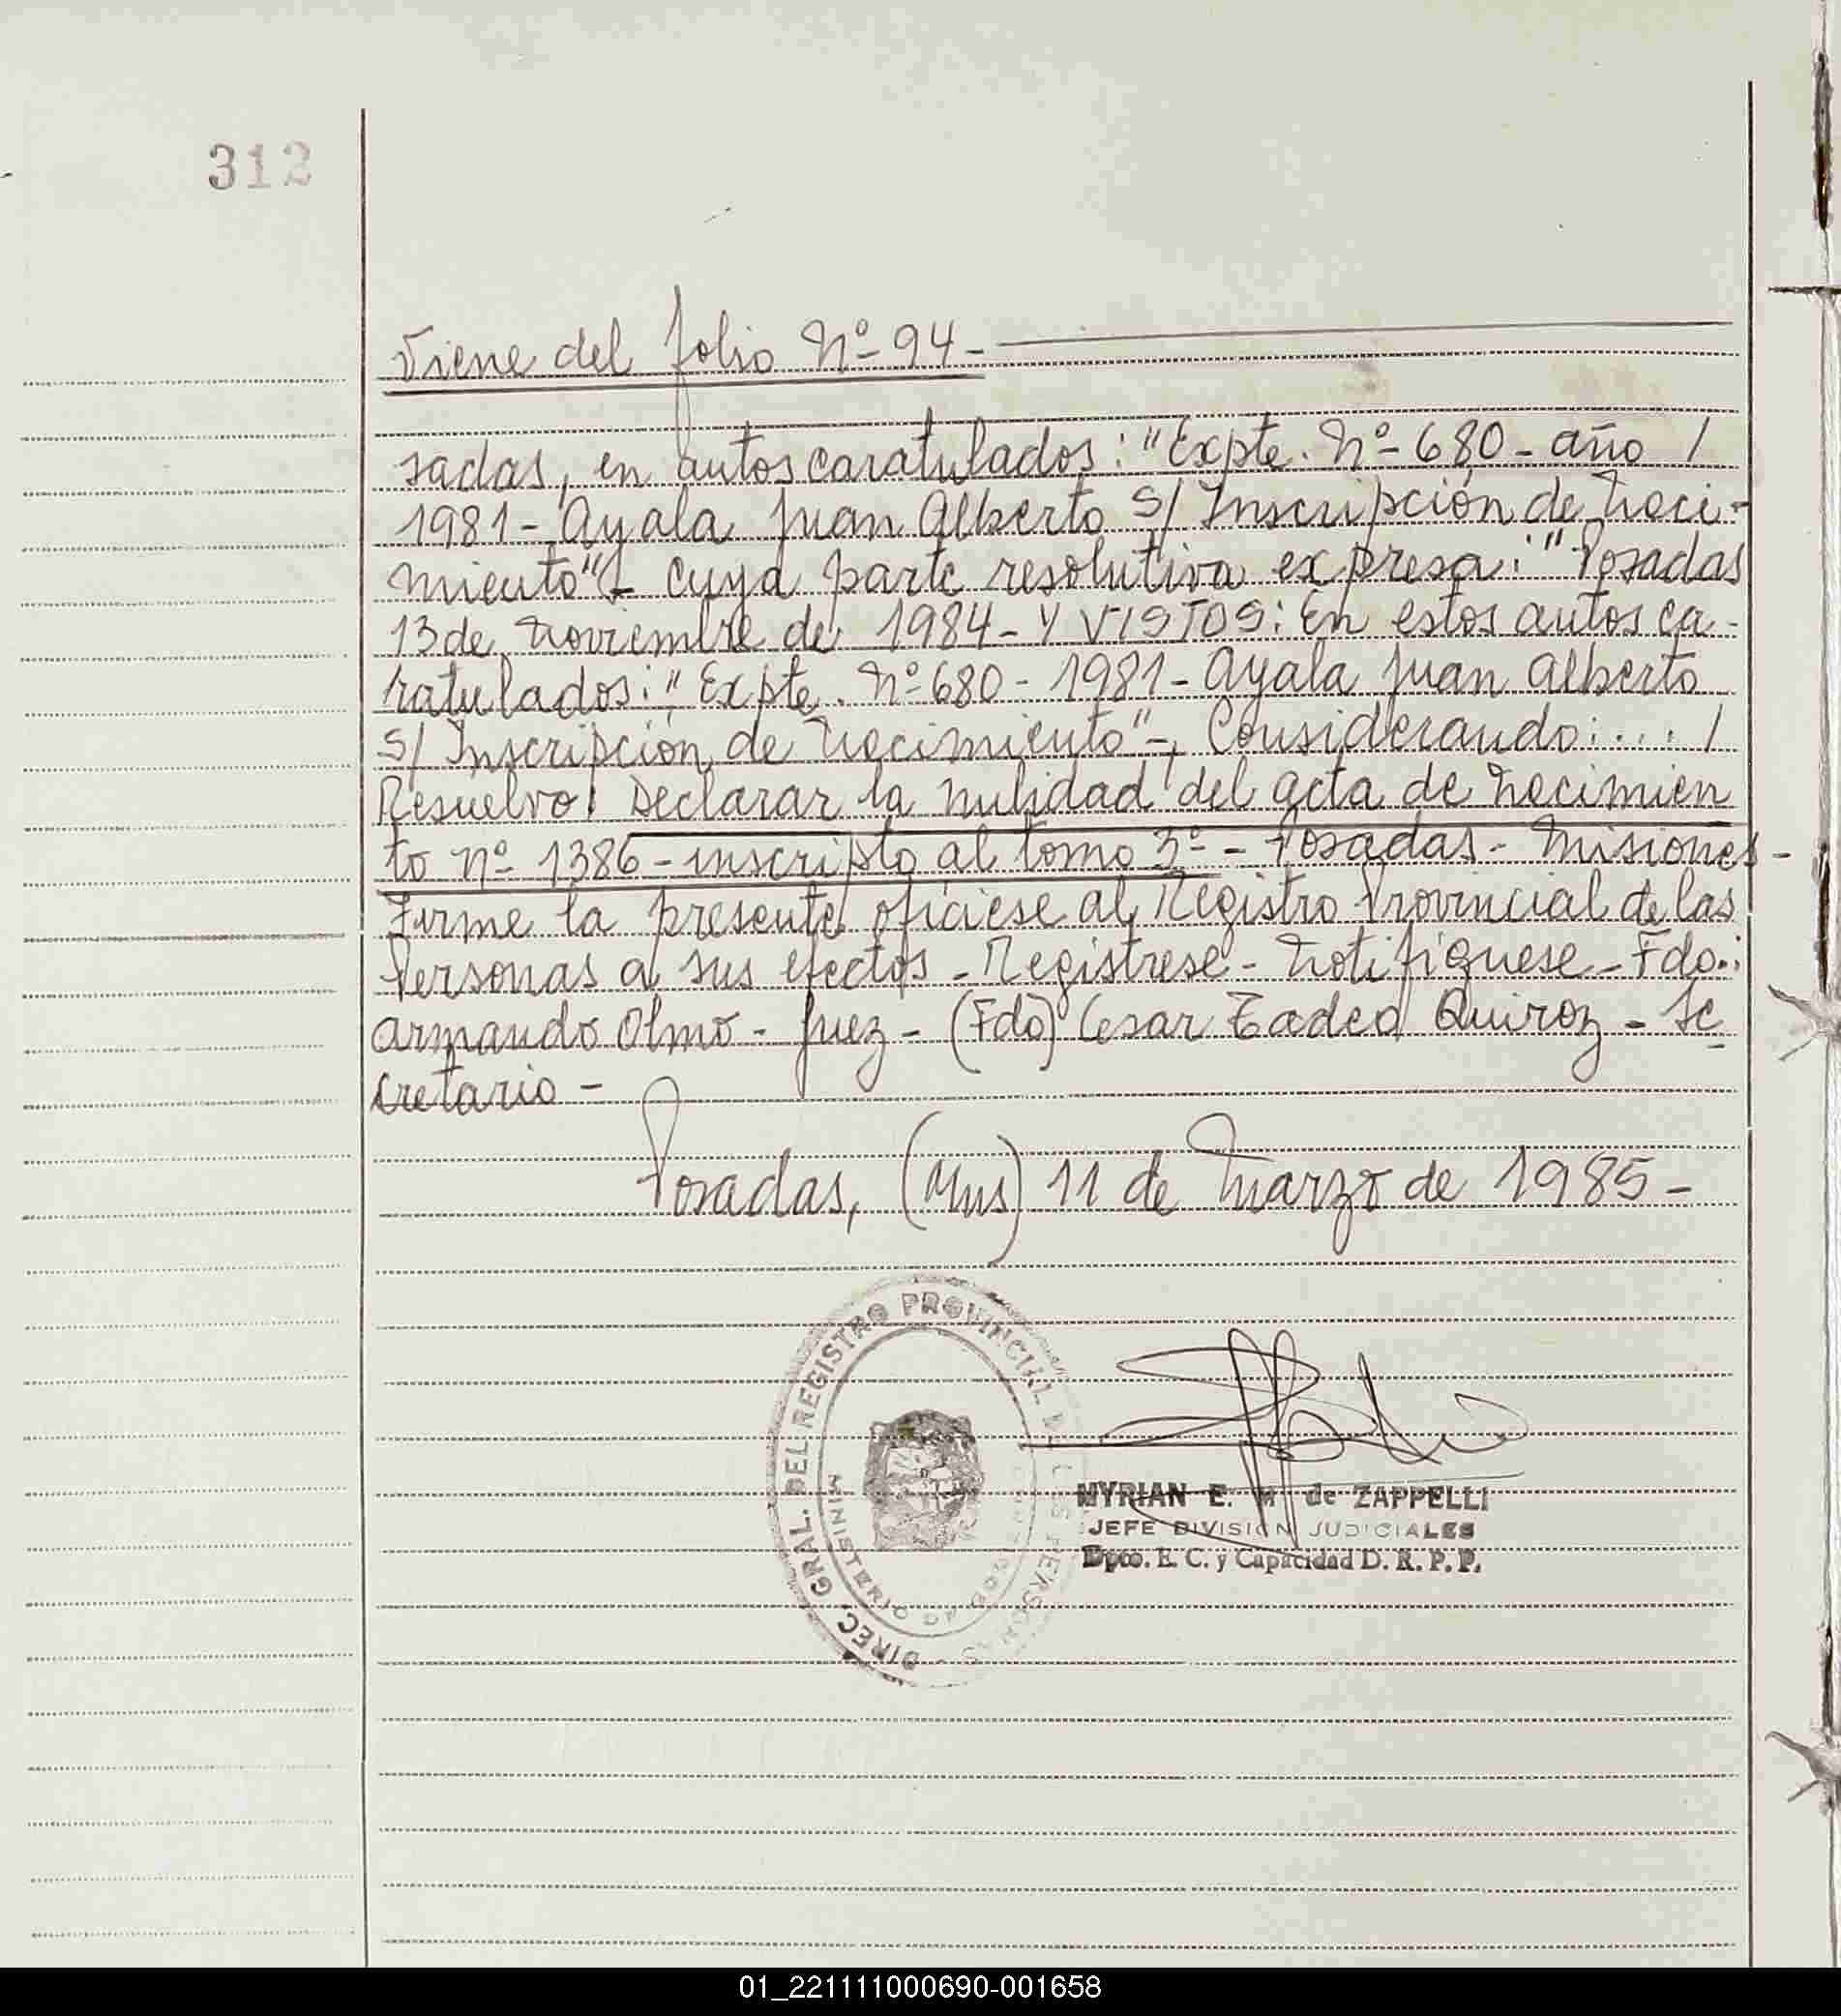 312
Viene del folio Nº 94-
sadas, en autos caratulados: "Expte. Nº 680 - año /
1981 - Ayala Juan Alberto S/ Inscripción de Naci-
miento" - cuya parte resolutiva expresa: "Posadas
13 de Noviembre de 1984 - Y VISTOS: En estos autos ca-
ratulados: "Expte. Nº 680 - 1981 - Ayala Juan Alberto
S/ Inscripción de Nacimiento"-, Considerando: ... /
Resuelvo: Declarar la nulidad del acta de Nacimien
to nº 1386 - inscripto al tomo 3º - Posadas - Misiones -
Firme la presente ofíciese al Registro Provincial de las
Personas a sus efectos - Regístrese - Notifíquese - Fdo.:
Armando Olmo - Juez - (Fdo) Cesar Tadeo Quiroz - Se
cretario -
Posadas, (Mns) 11 de Marzo de 1985 -
DIREC. GRAL. DEL REGISTRO PROVINCIAL DE LAS PERSONAS
MINISTERIO DE GOBIERNO
MYRIAN E. M. de ZAPPELLI
JEFE DIVISION JUDICIALES
Dpto. E. C. y Capacidad D. R. P. P.
01_221111000690-001658